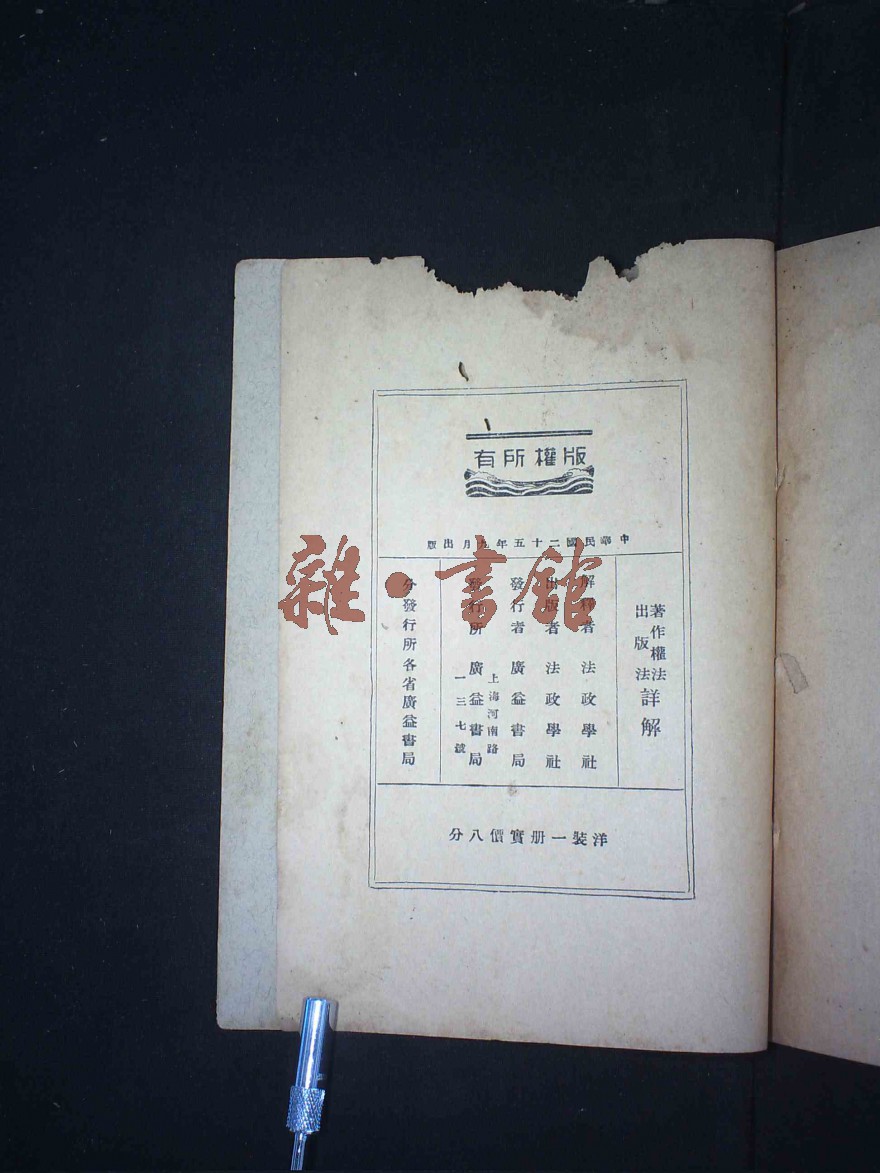 版權所有
中華民國二十五年 月出版
著作權法
出版法
詳解
解釋者 法政學社
出版者 法政學社
發行者 廣益書局
發行所 廣益書局
上海河南路
一三七號
分發行所各省廣益書局
洋裝一册實價八分
雜·書館